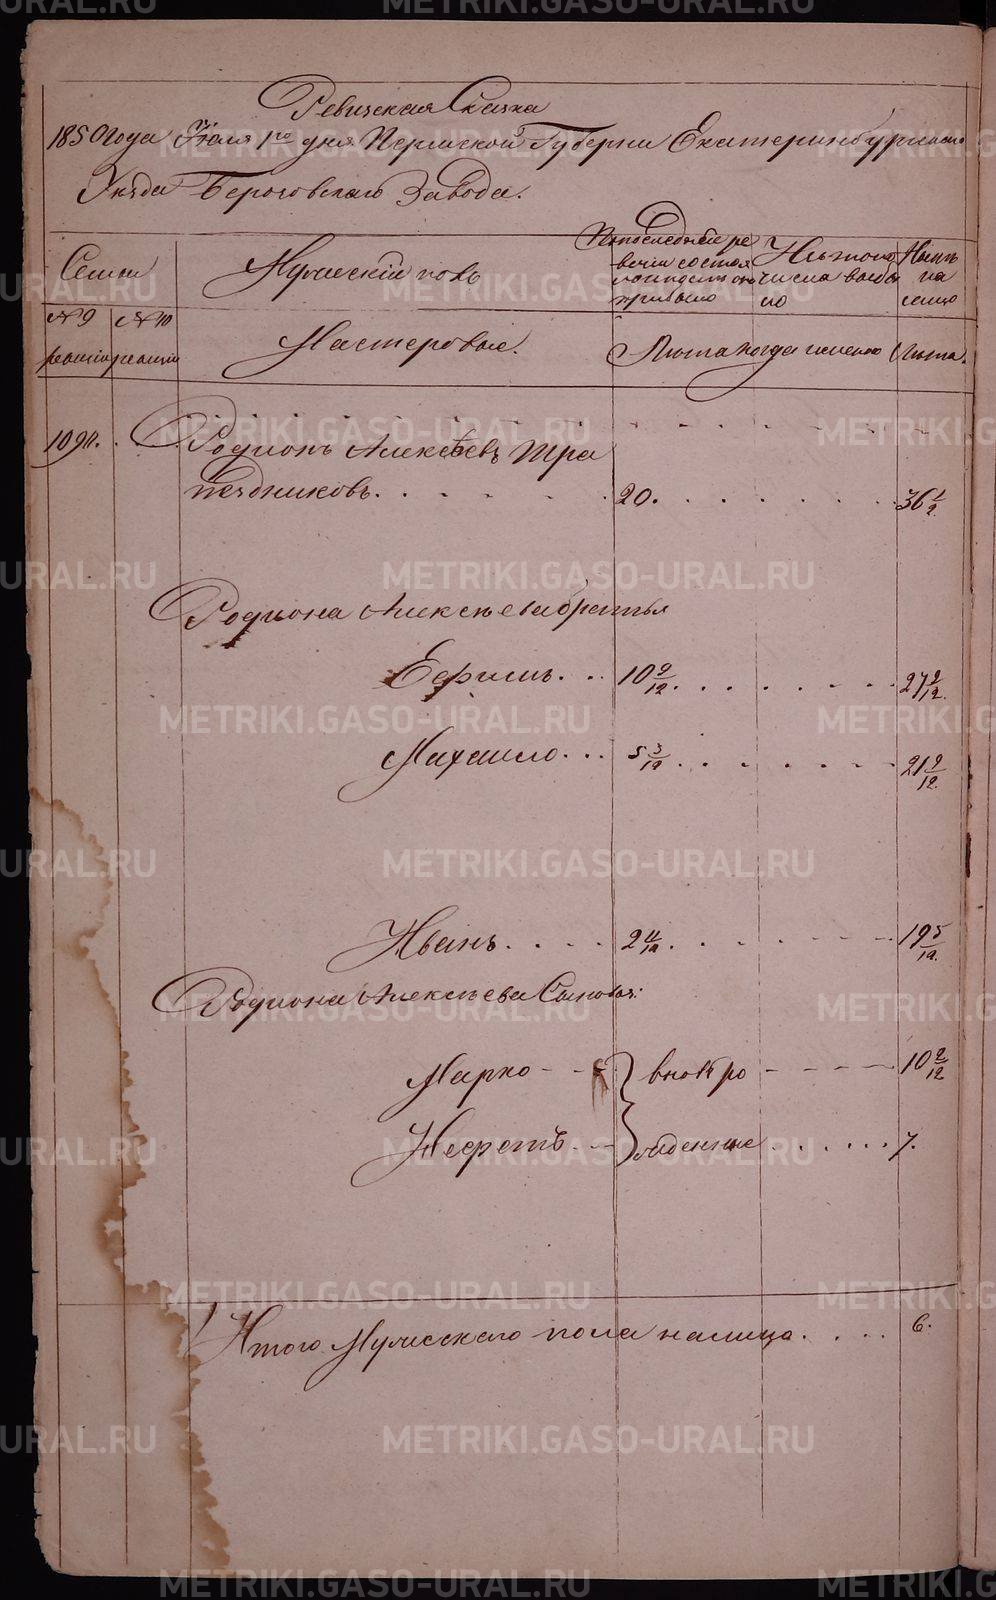 Ревизская Сказка
1850 года Июля 1го дня Пермской Губернии Екатеринбургскаго
Уезда Березовскаго Завода.
Семьи
Мужескiй полъ
По последней ре
визiи состоя
ло и после оной
прибыло
Изъ того
числа выбы
ло
Ныне
на
лицо
№ 9
ревизiи
№ 10
ревизiи
Мастеровые.
Лета
когда именно
Лета.
1094.
Родионъ Алексѣевъ Тра
пезниковъ. 20. 36 1/2
Родиона Алексѣева братья
Ефимъ. 10 9/12. 27 2/12.
Михаило 5 3/12. 21 9/12.
Иванъ. 2 11/12. 19 5/12.
Родиона Алексѣева Сыновья:
Марко вновь ро 10 2/12
Неф жденные 7.
Итого Мужескаго пола налицо. 6.
METRIKI.GASO-URAL.RU